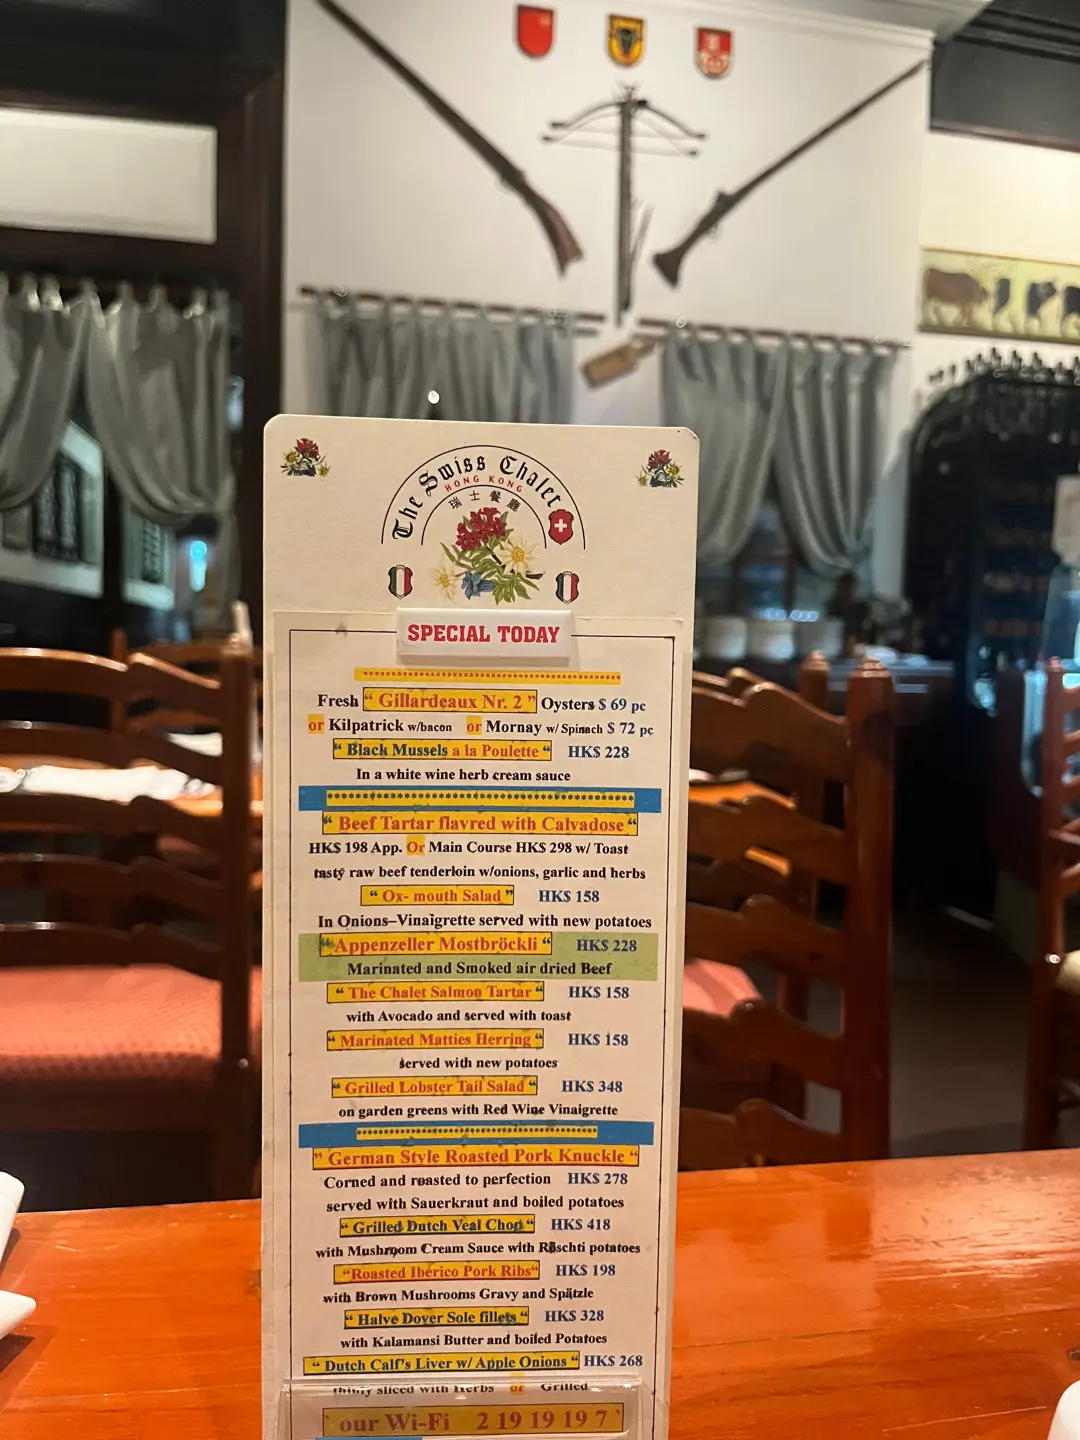 The Swiss Chalet
HONG KONG
瑞士餐廳
SPECIAL TODAY
Fresh “ Gillardeaux Nr. 2 ” Oysters $ 69 pc
or Kilpatrick w/bacon or Mornay w/ Spinach $ 72 pc
“ Black Mussels a la Poulette “ HK$ 228
In a white wine herb cream sauce
“ Beef Tartar flavred with Calvadose “
HK$ 198 App. Or Main Course HK$ 298 w/ Toast
tasty raw beef tenderloin w/onions, garlic and herbs
“ Ox- mouth Salad ” HK$ 158
In Onions–Vinaigrette served with new potatoes
“Appenzeller Mostbröckli “ HK$ 228
Marinated and Smoked air dried Beef
“ The Chalet Salmon Tartar “ HK$ 158
with Avocado and served with toast
“ Marinated Matties Herring “ HK$ 158
served with new potatoes
“ Grilled Lobster Tail Salad “ HK$ 348
on garden greens with Red Wine Vinaigrette
” German Style Roasted Pork Knuckle “
Corned and roasted to perfection HK$ 278
served with Sauerkraut and boiled potatoes
“ Grilled Dutch Veal Chop “ HK$ 418
with Mushroom Cream Sauce with Röschti potatoes
“Roasted Iberico Pork Ribs“ HK$ 198
with Brown Mushrooms Gravy and Spätzle
“ Halve Dover Sole fillets “ HK$ 328
with Kalamansi Butter and boiled Potatoes
“ Dutch Calf's Liver w/ Apple Onions “ HK$ 268
thinly sliced with Herbs or Grilled
` our Wi-Fi 2 19 19 19 7 `